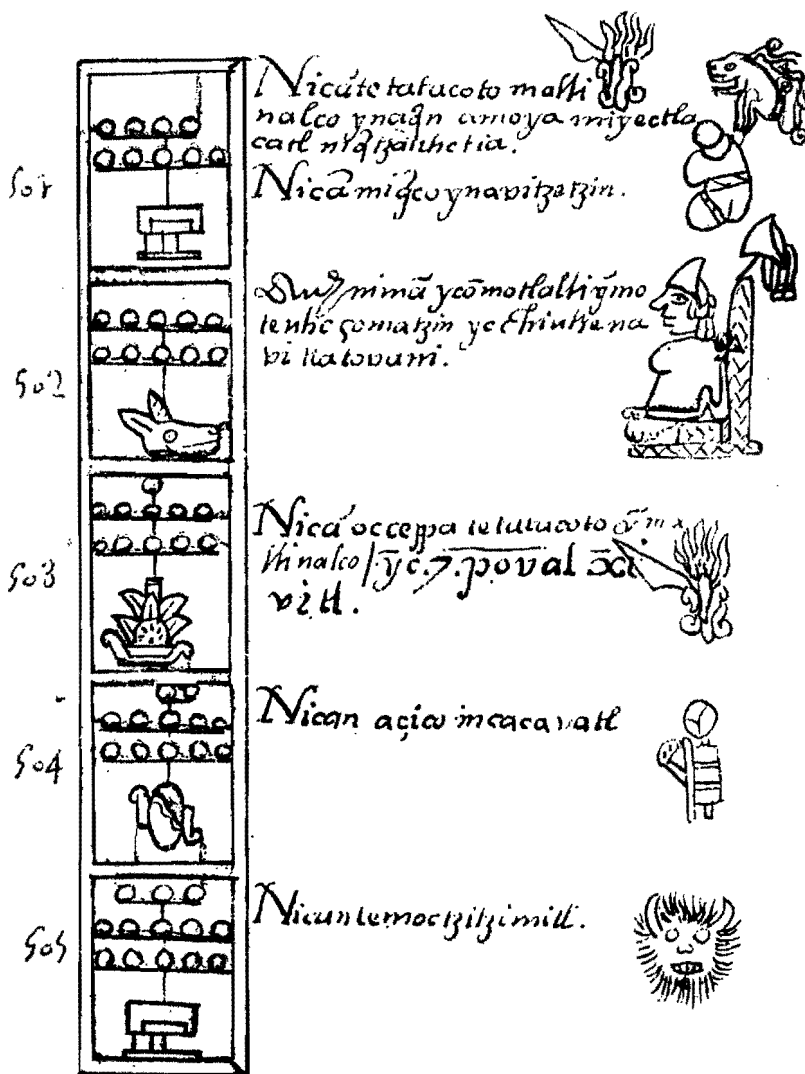 501
Nicā tetatacoto malli
nalco ynaqn amoya miyectla
catl
Nicā miq̄co ynavitzetzin.
502
nimā ycōmotlalli ȳmo
tenhcçomatzin yc chiuhcna
vi tlatovani.
503
Nicā occeppa tetatacoto ȳma
llinalco / ȳc. 7. poval x̄i
vitl.
504
Nican açico incacavatl
505
Nican temoc tzitzimitl.